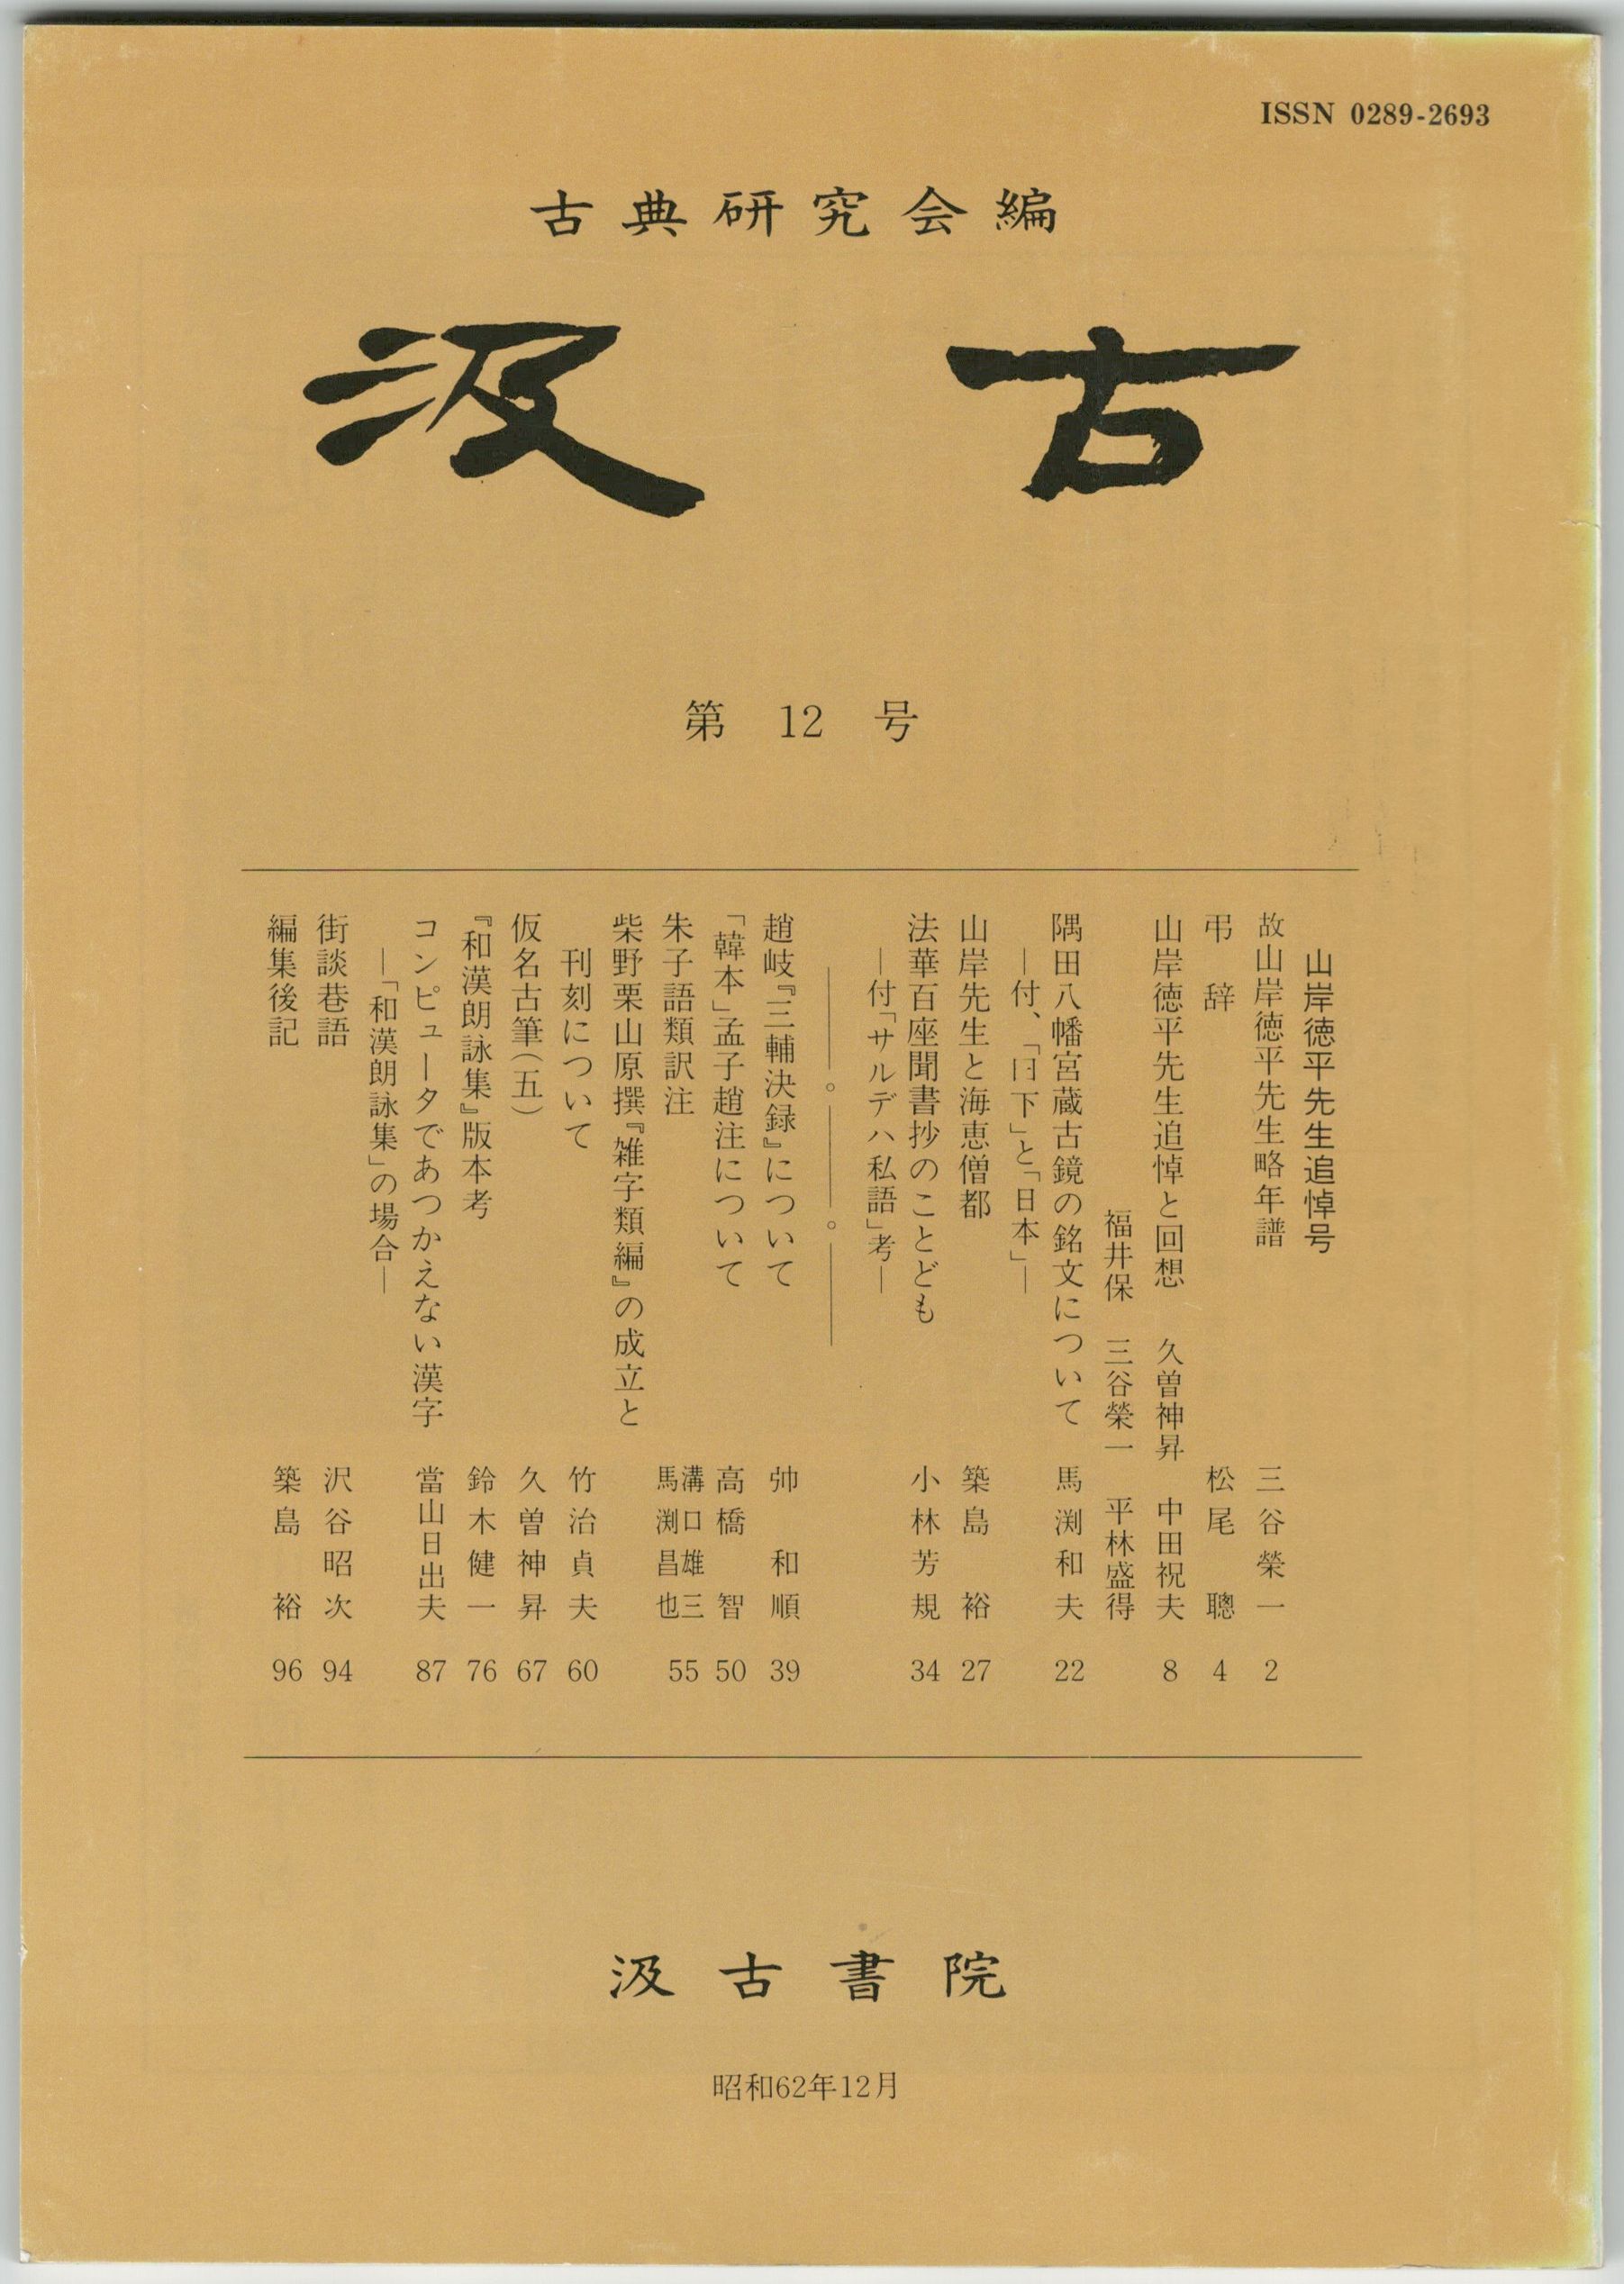 ISSN 0289-2693
古典研究会編
汲古
第12号
山岸徳平先生追悼号
故山岸徳平先生略年譜 三谷榮一 2
弔辞 松尾聰 4
山岸徳平先生追悼と回想 久曽神昇 中田祝夫 8
福井保 三谷榮一 平林盛得
隅田八幡宮蔵古鏡の銘文について 馬渕和夫 22
―付、「日下」と「日本」―
山岸先生と海恵僧都 築島裕 27
法華百座聞書抄のことども 小林芳規 34
―付「サルデハ私語」考―
趙岐『三輔決録』について 帅和順 39
「韓本」孟子趙注について 高橋智 50
朱子語類訳注 溝口雄三 馬渕昌也 55
柴野栗山原撰『雑字類編』の成立と
刊刻について 竹治貞夫 60
仮名古筆(五) 久曽神昇 67
『和漢朗詠集』版本考 鈴木健一 76
コンピュータであつかえない漢字 當山日出夫 87
―「和漢朗詠集」の場合―
街談巷語 沢谷昭次 94
編集後記 築島裕 96
汲古書院
昭和62年12月